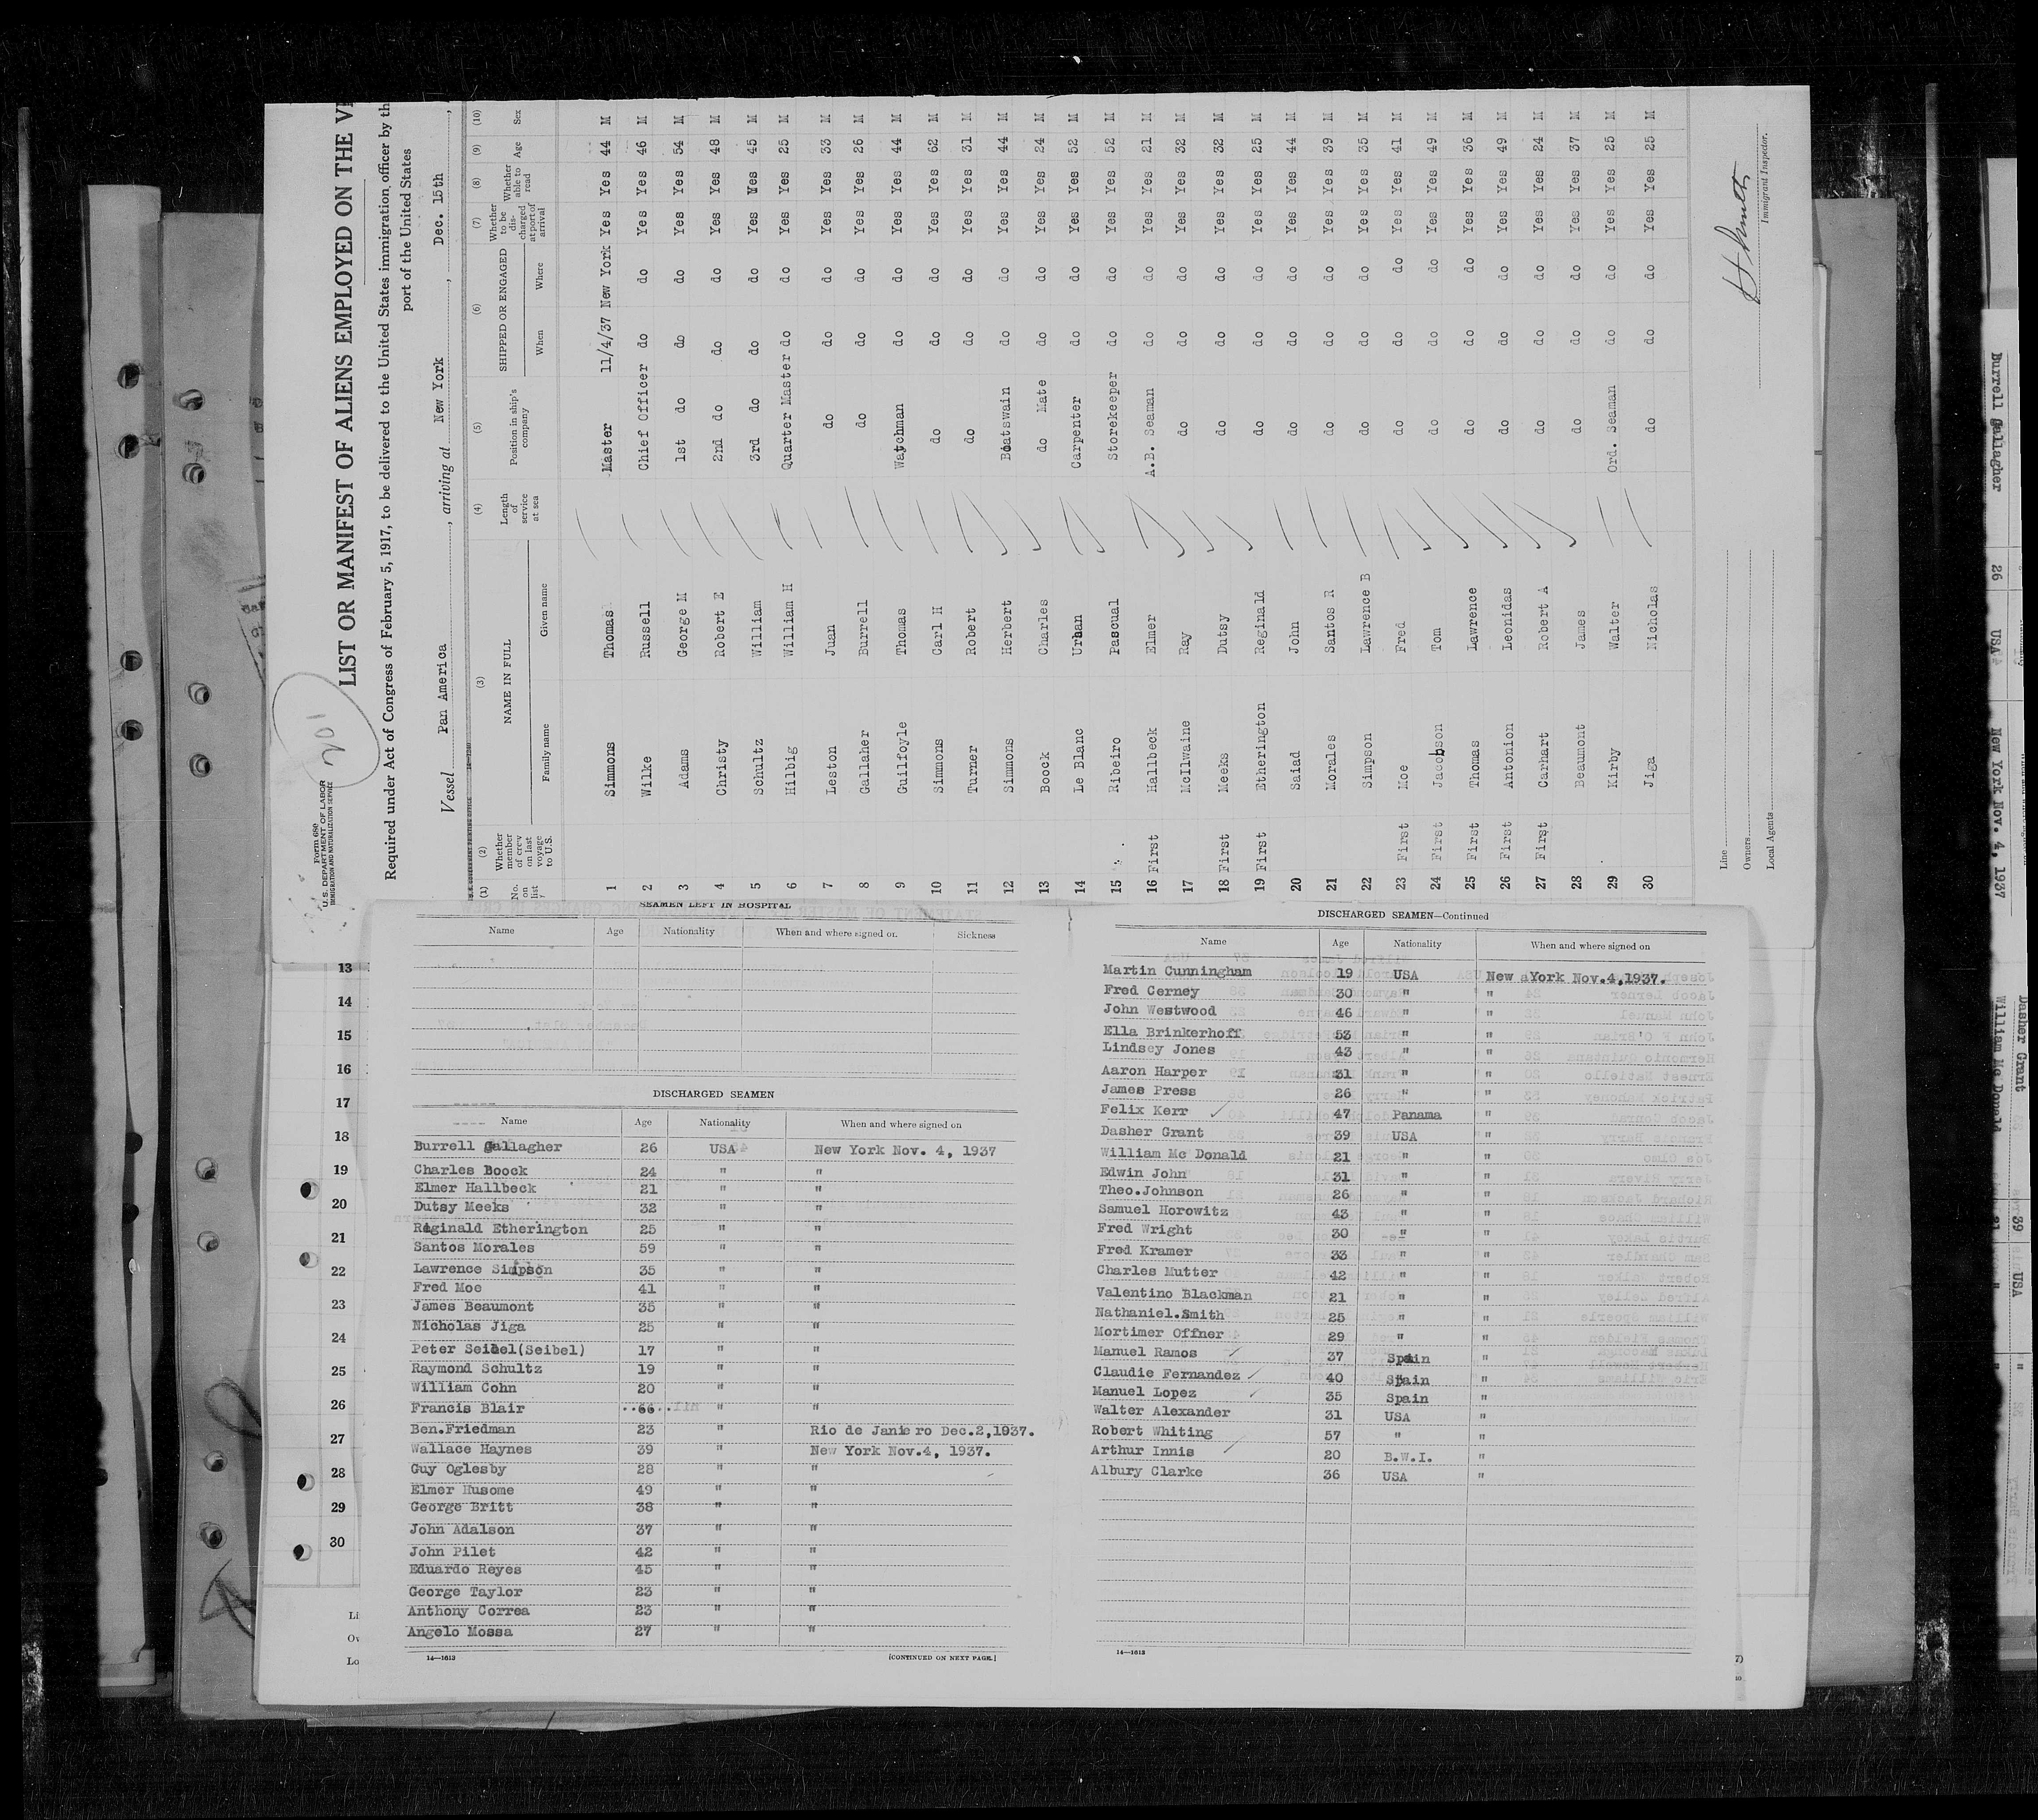 Form 680
U. S. DEPARTMENT OF LABOR
IMMIGRATION AND NATURALIZATION SERVICE
201
LIST OR MANIFEST OF ALIENS EMPLOYED ON THE
Required under Act of Congress of February 5, 1917, to be delivered to the United States immigration officer by th
port of the United States
Vessel Pan America, arriving at New York, Dec. 15th,
(1) (2) (3) (4) (5) (6) (7) (8) (9) (10)
No. on list Whether member of crew on last voyage to U.S. NAME IN FULL Family name Given name Length of service at sea Position in ship's company SHIPPED OR ENGAGED When Where Whether to be discharged at port of arrival Whether able to read Age Sex
1 Simmons Thomas Master 11/4/37 New York Yes Yes 44 M
2 Wilke Russell Chief Officer do do Yes Yes 46 M
3 Adams George M 1st do do do Yes Yes 54 M
4 Christy Robert E 2nd do do do Yes Yes 48 M
5 Schultz William 3rd do do do Yes Yes 45 M
6 Hilbig William H Quarter Master do do Yes Yes 25 M
7 Leston Juan do do do Yes Yes 33 M
8 Gallaher Burrell do do do Yes Yes 26 M
9 Guilfoyle Thomas Watchman do do Yes Yes 44 M
10 Simmons Carl H do do do Yes Yes 62 M
11 Turner Robert do do do Yes Yes 31 M
12 Simmons Herbert Boatswain do do Yes Yes 44 M
13 Boock Charles do Mate do do Yes Yes 24 M
14 Le Blanc Urban Carpenter do do Yes Yes 52 M
15 Ribeiro Pascual Storekeeper do do Yes Yes 52 M
16 First Hallbeck Elmer A.B. Seaman do do Yes Yes 21 M
17 McIlwaine Ray do do do Yes Yes 32 M
18 First Meeks Dutsy do do do Yes Yes 32 M
19 First Etherington Reginald do do do Yes Yes 25 M
20 Saiad John do do do Yes Yes 44 M
21 Morales Santos R do do do Yes Yes 39 M
22 Simpson Lawrence B do do do Yes Yes 35 M
23 First Moe Fred do do do Yes Yes 41 M
24 First Jacobson Tom do do do Yes Yes 49 M
25 First Thomas Lawrence do do do Yes Yes 36 M
26 First Antonion Leonidas do do do Yes Yes 49 M
27 First Carhart Robert A do do do Yes Yes 24 M
28 Beaumont James do do do Yes Yes 37 M
29 Kirby Walter Ord. Seaman do do Yes Yes 25 M
30 Jiga Nicholas do do do Yes Yes 25 M
Line
Owners
Local Agents
Immigrant Inspector.
13
14
15
16
17
18
19
20
21
22
23
24
25
26
27
28
29
30
Li
Ow
Lo
SEAMEN LEFT IN HOSPITAL
Name Age Nationality When and where signed on Sickness
DISCHARGED SEAMEN
Name Age Nationality When and where signed on
Burrell Gallagher 26 USA New York Nov. 4, 1937
Charles Boock 24 " "
Elmer Hallbeck 21 " "
Dutsy Meeks 32 " "
Reginald Etherington 25 " "
Santos Morales 59 " "
Lawrence Simpson 35 " "
Fred Moe 41 " "
James Beaumont 35 " "
Nicholas Jiga 25 " "
Peter Seidel(Seibel) 17 " "
Raymond Schultz 19 " "
William Cohn 20 " "
Francis Blair 66 " "
Ben.Friedman 23 " Rio de Janiero Dec.2,1937.
Wallace Haynes 39 " New York Nov.4, 1937.
Guy Oglesby 28 " "
Elmer Husome 49 " "
George Britt 38 " "
John Adalson 37 " "
John Pilet 42 " "
Eduardo Reyes 45 " "
George Taylor 23 " "
Anthony Correa 23 " "
Angelo Mossa 27 " "
14—1613 [CONTINUED ON NEXT PAGE.]
DISCHARGED SEAMEN—Continued
Name Age Nationality When and where signed on
Martin Cunningham 19 USA New York Nov.4,1937.
Fred Cerney 30 " "
John Westwood 46 " "
Ella Brinkerhoff 53 " "
Lindsey Jones 43 " "
Aaron Harper 31 " "
James Press 26 " "
Felix Kerr 47 Panama "
Dasher Grant 39 USA "
William Mc Donald 21 " "
Edwin John 31 " "
Theo.Johnson 26 " "
Samuel Horowitz 43 " "
Fred Wright 30 " "
Fred Kramer 33 " "
Charles Mutter 42 " "
Valentino Blackman 21 " "
Nathaniel.Smith 25 " "
Mortimer Offner 29 " "
Manuel Ramos 37 Spain "
Claudie Fernandez 40 Spain "
Manuel Lopez 35 Spain "
Walter Alexander 31 USA "
Robert Whiting 57 " "
Arthur Innis 20 B.W.I. "
Albury Clarke 36 USA "
14—1613
Burrell Gallagher 26 USA New York Nov. 4, 1937
Dasher Grant 39 USA "
William Mc Donald 21 " "